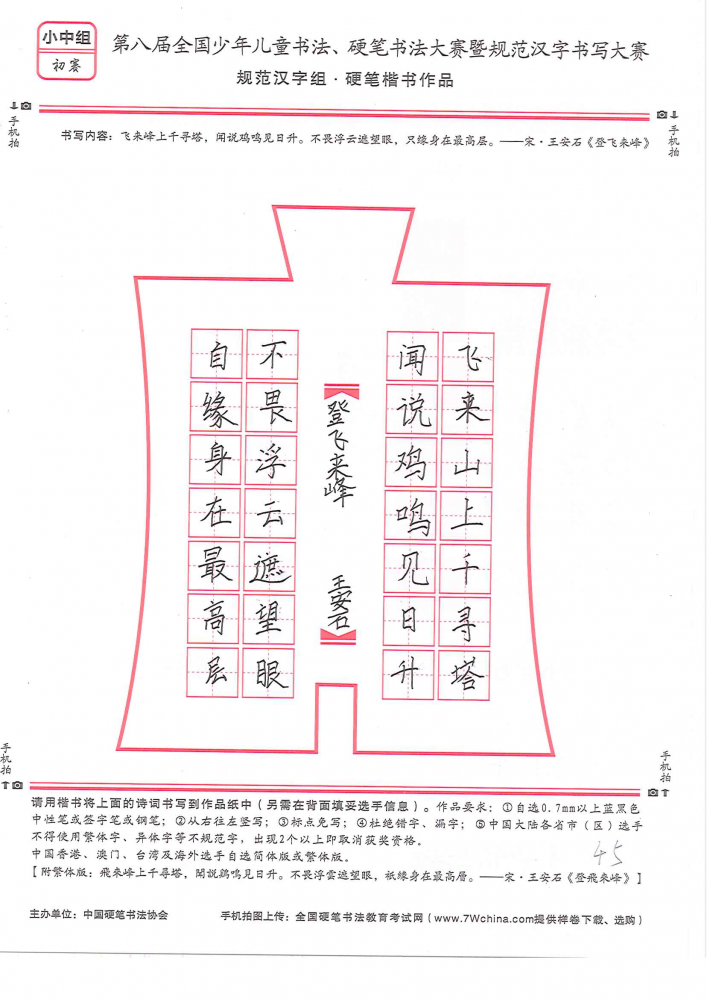 小中组
初赛
第八届全国少年儿童书法、硬笔书法大赛暨规范汉字书写大赛
规范汉字组·硬笔楷书作品
手机拍
手机拍
书写内容：飞来峰上千寻塔，闻说鸡鸣见日升。不畏浮云遮望眼，只缘身在最高层。——宋·王安石《登飞来峰》
飞来山上千寻塔
闻说鸡鸣见日升
登飞来峰 王安石
不畏浮云遮望眼
自缘身在最高层
手机拍
手机拍
请用楷书将上面的诗词书写到作品纸中（另需在背面填妥选手信息）。作品要求：①自选0.7mm以上蓝黑色
中性笔或签字笔或钢笔；②从右往左竖写；③标点免写；④杜绝错字、漏字；⑤中国大陆各省市（区）选手
不得使用繁体字、异体字等不规范字，出现2个以上即取消获奖资格。
中国香港、澳门、台湾及海外选手自选简体版或繁体版。
45
【附繁体版：飛來峰上千尋塔，聞說鷄鳴見日升。不畏浮雲遮望眼，祇緣身在最高層。——宋·王安石《登飛來峰》】
主办单位：中国硬笔书法协会
手机拍图上传：全国硬笔书法教育考试网（www.7Wchina.com提供样卷下载、选购）